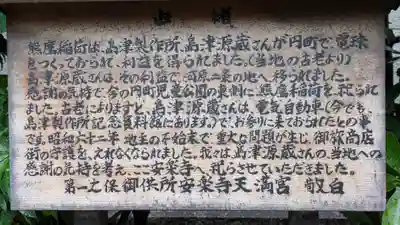 熊鷹稲荷は、島津製作所、島津源蔵さんが円町で、電球
をつくっておられ、利益を得られました。(当地の古老より)
島津源蔵さんは、その利益で、河原二条の地へ、移られました。
感謝の気持で、今の円町児童公園の東側に、熊鷹稲荷を祀られ
ました。古老によりますと、島津源蔵さんは、電気自動車(今でも、
島津製作所記念資料館にあります。)で、お参りに来ておられたとの事
です。昭和六十二年、地主の不始末で、重大な問題が生じ、御旅商店
街の守護を、えれなくなられました。我々は、島津源蔵さんの、当地への
感謝の気持を考え、ここ安楽寺へ、祀らせていただきました。
第一之保御供所安楽寺天満宮 敬白